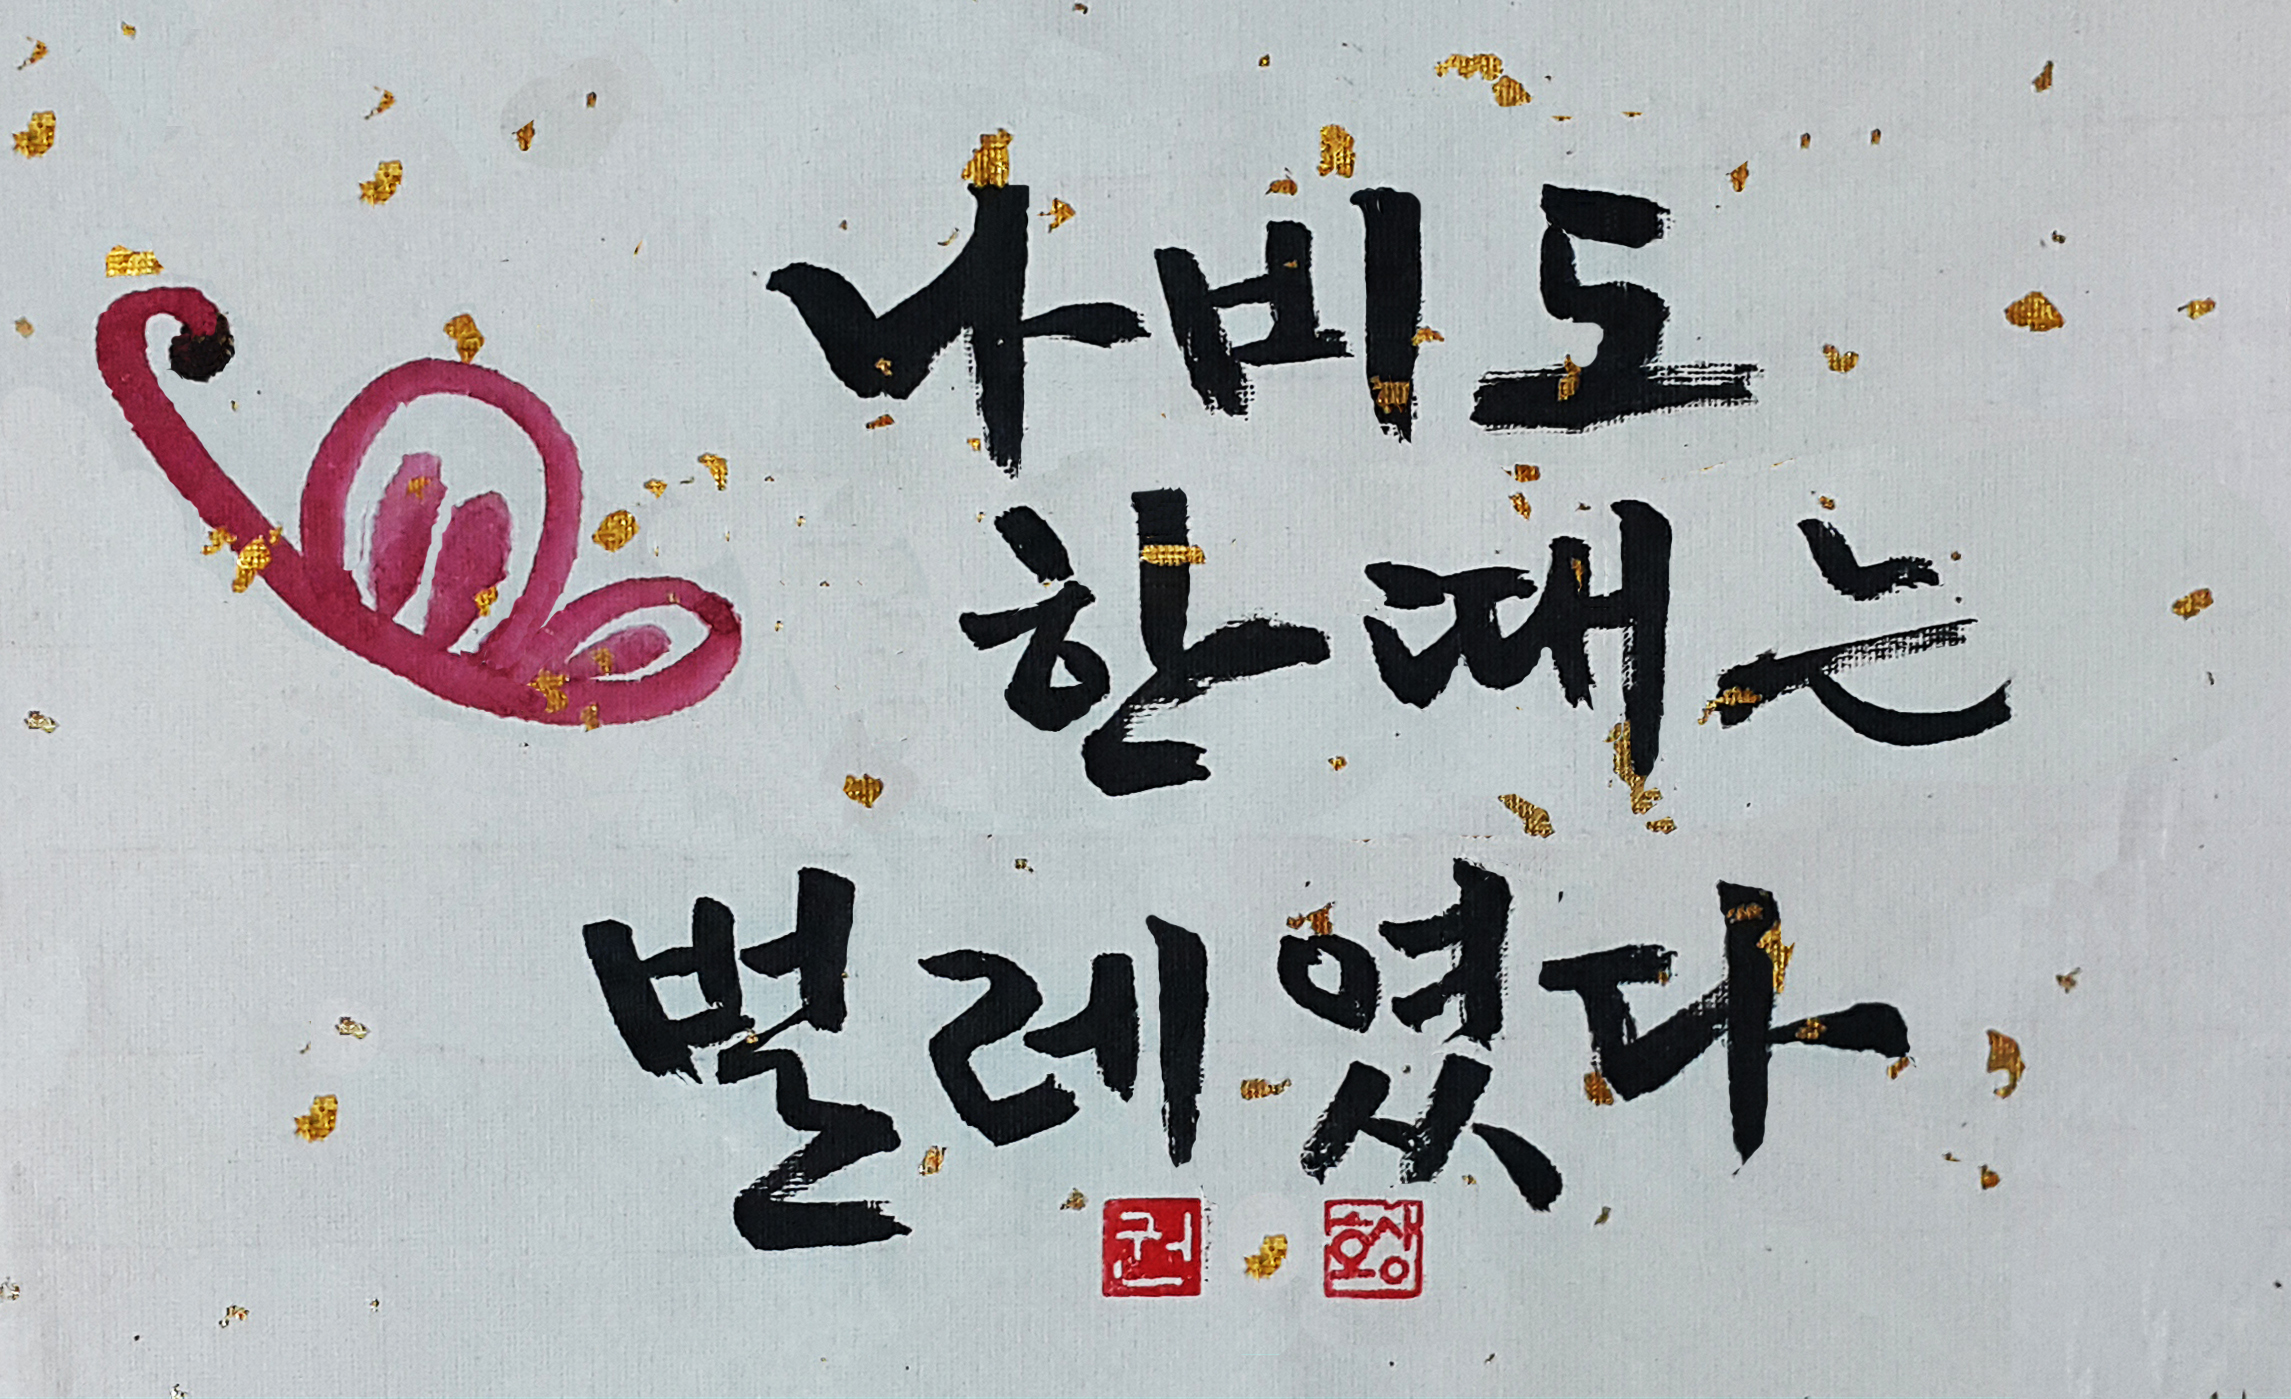 나비도
한때는
벌레였다
권